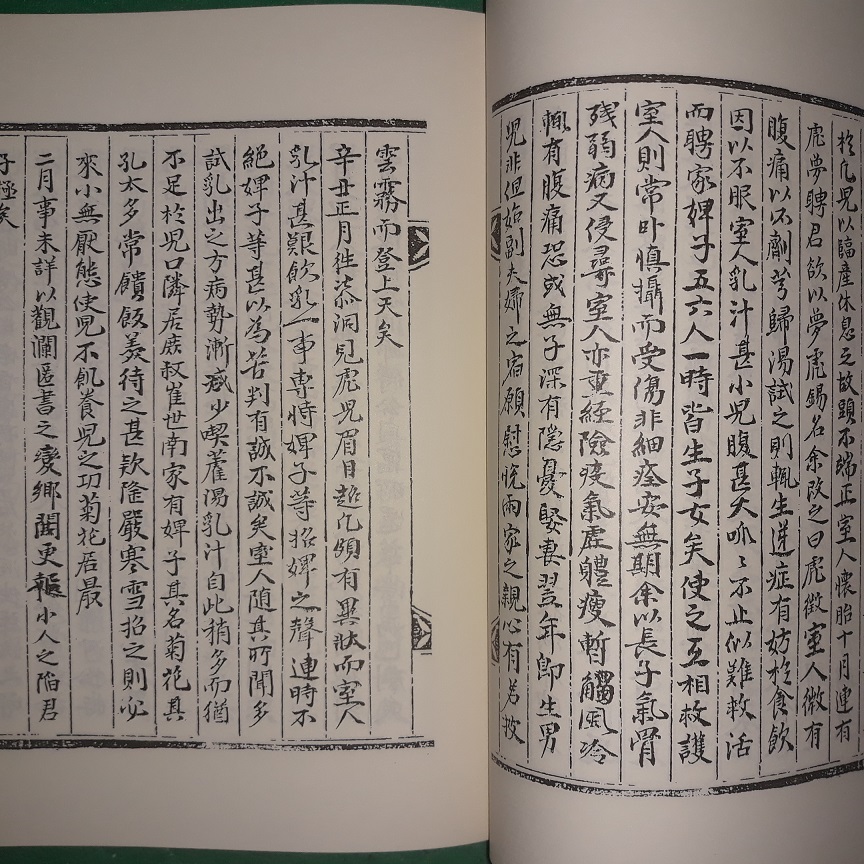 於凡兒以臨産休息之故頭不端正室人懷胎十月連有
虎夢聘君欲以夢虎錫名余改之曰虎徵室人微有
腹痛以不劑芎歸湯試之則輒生逆症有妨於食飮
因以不眠室人乳汁甚小兒腹甚大呱〻不止似難救活
而聘家婢子五六人一時皆生子女矣使之互相救護
室人則常卧愼攝而受傷非細痊安無期余以長子氣骨
残弱病又侵尋室人亦重經險疫氣虛軆瘦暫觸風冷
輒有腹痛恐或無子深有隱憂娶妻翌年卽生男
兒非但始副夫婦之宿願慰悅兩家之親心有若披
雲霧而登上天矣
辛丑正月徃洞見虎兒眉目超凡頗有異狀而室人
乳汁甚艱飮乳一事專恃婢子等招婢之聲連時不
絕婢子等甚以為苦判有誠不誠矣室人随其所聞多
試乳出之方病勢漸减少喫藿湯乳汁自此稍多而猶
不足於兒口隣居庶叔崔世南家有婢子其名菊花其
乳太多常饋飯羹待之甚欵隆嚴寒雪招之則必
來小無厭態使兒不飢養兒之功菊花居最
二月事未詳以觀瀾匾書之變鄉聞更小人之陷君
子極矣